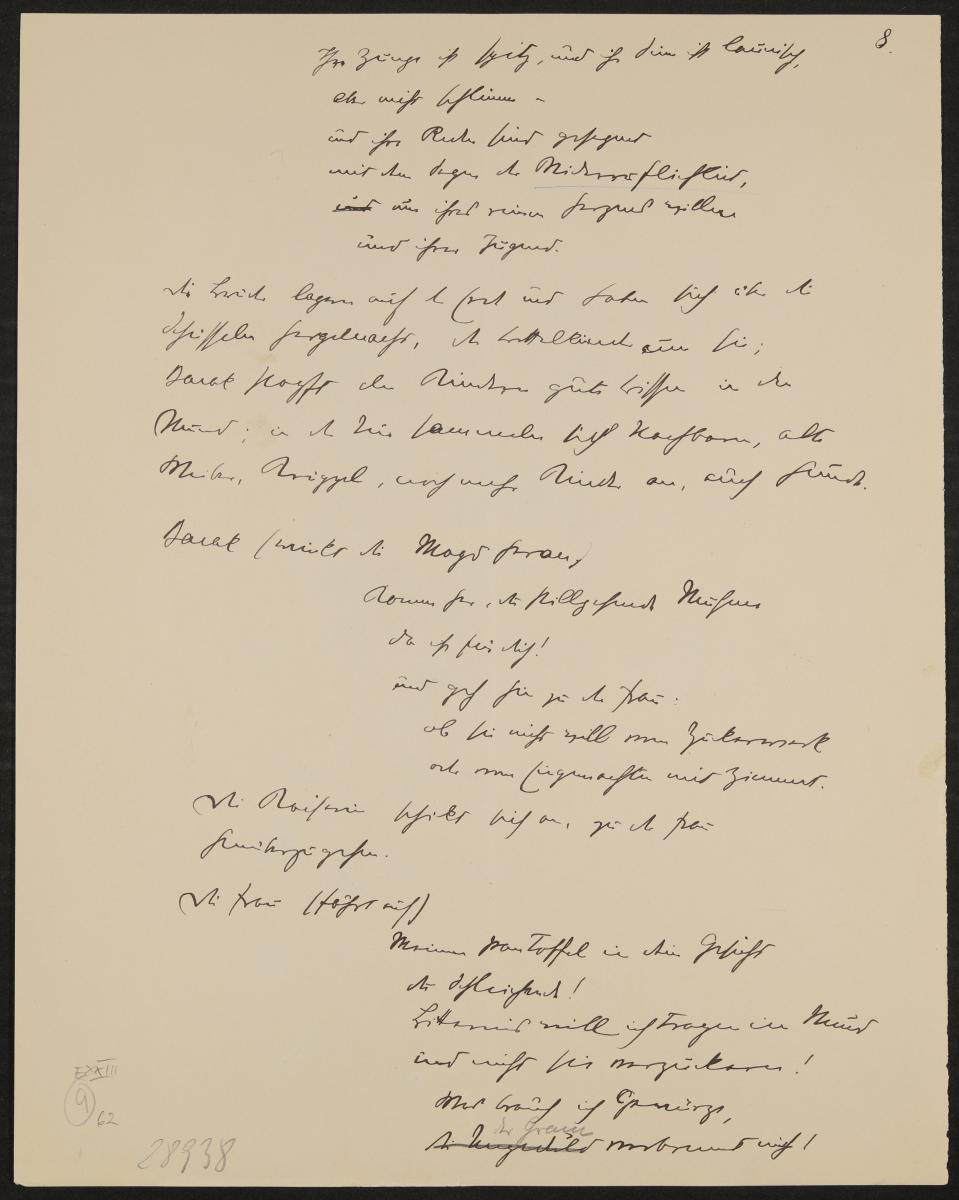 8.
Ihre Zunge ist spitz, und ihr Sinn ist launisch,
aber nicht schlimm –
und ihre Reden sind gesegnet
mit dem Segen der Widerruflichkeit,
und um ihres reinen Herzens willen
und ihrer Jugend.
die Brüder lagern auf der Erd und haben sich über die
Schüsseln hergemacht, die Bettelkinder um sie;
Barak stopft den Kindern gute Bissen in den
Mund; in der Tür sammeln sich Nachbarn, alte
Weiber, Krüppel, noch mehr Kinder an, auch Hunde.
Barak (winkt die Magd heran)
Komm her, du stillgehende Muhme
da iss für dich!
und geh hin zu der Frau:
ob sie nicht will vom Zuckerwerk
oder vom Eingemachten mit Zimmt.
Die Kaiserin schickt sich an, zu der Frau
hinüberzugehen.
Die Frau (fährt auf)
Meinen Pantoffel in dein Gesicht
du Schleichende!
Bitternis will ich tragen im Mund
und nicht sie verzuckern!
Was brauch ich Gewürze,
der Gram
die Ungeduld verbrennt mich!
EXXIII
9
62
28938